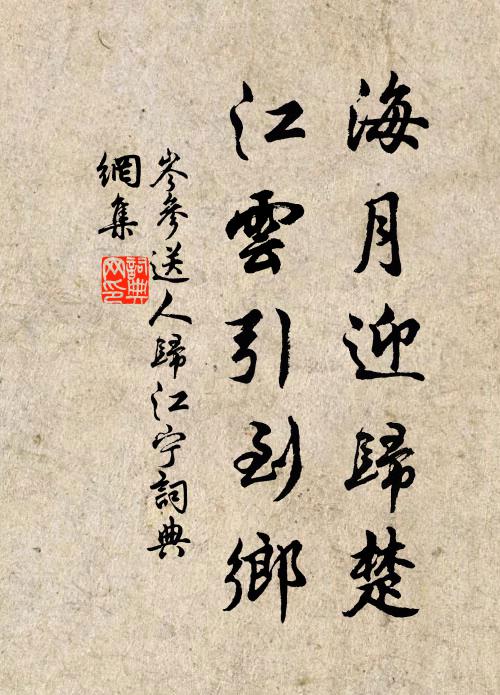 海月迎歸楚
江雲引到鄉
岑參送人歸江宁詞典
網集
詞典
网印